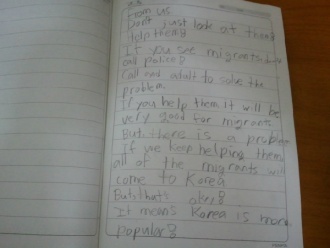 From us
Don't just look at them
Help them!
If you see migrants
call police!
Call and adult to solve the
problem
If you help them it will be
very good for migrants
But there is a problem
If we keep helping them
all of the migrants will
come to Korea
But that's okay!
It means Korea is more
popular!